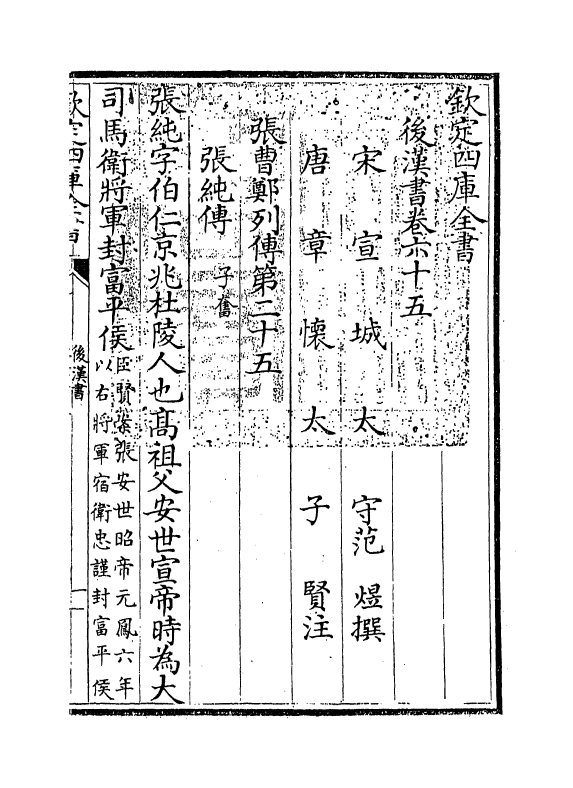 欽定四庫全書
後漢書卷六十五
宋宣城太守范煜撰
唐章懷太子賢注
張曹鄭列傳第二十五
張純傳 子奮
張純字伯仁京兆杜陵人也髙祖父安世宣帝時為大
司馬衛將軍封富平侯臣賢案張安世昭帝元鳳六年
以右將軍宿衛忠謹封富平侯
欽定四庫全書
後漢書
一